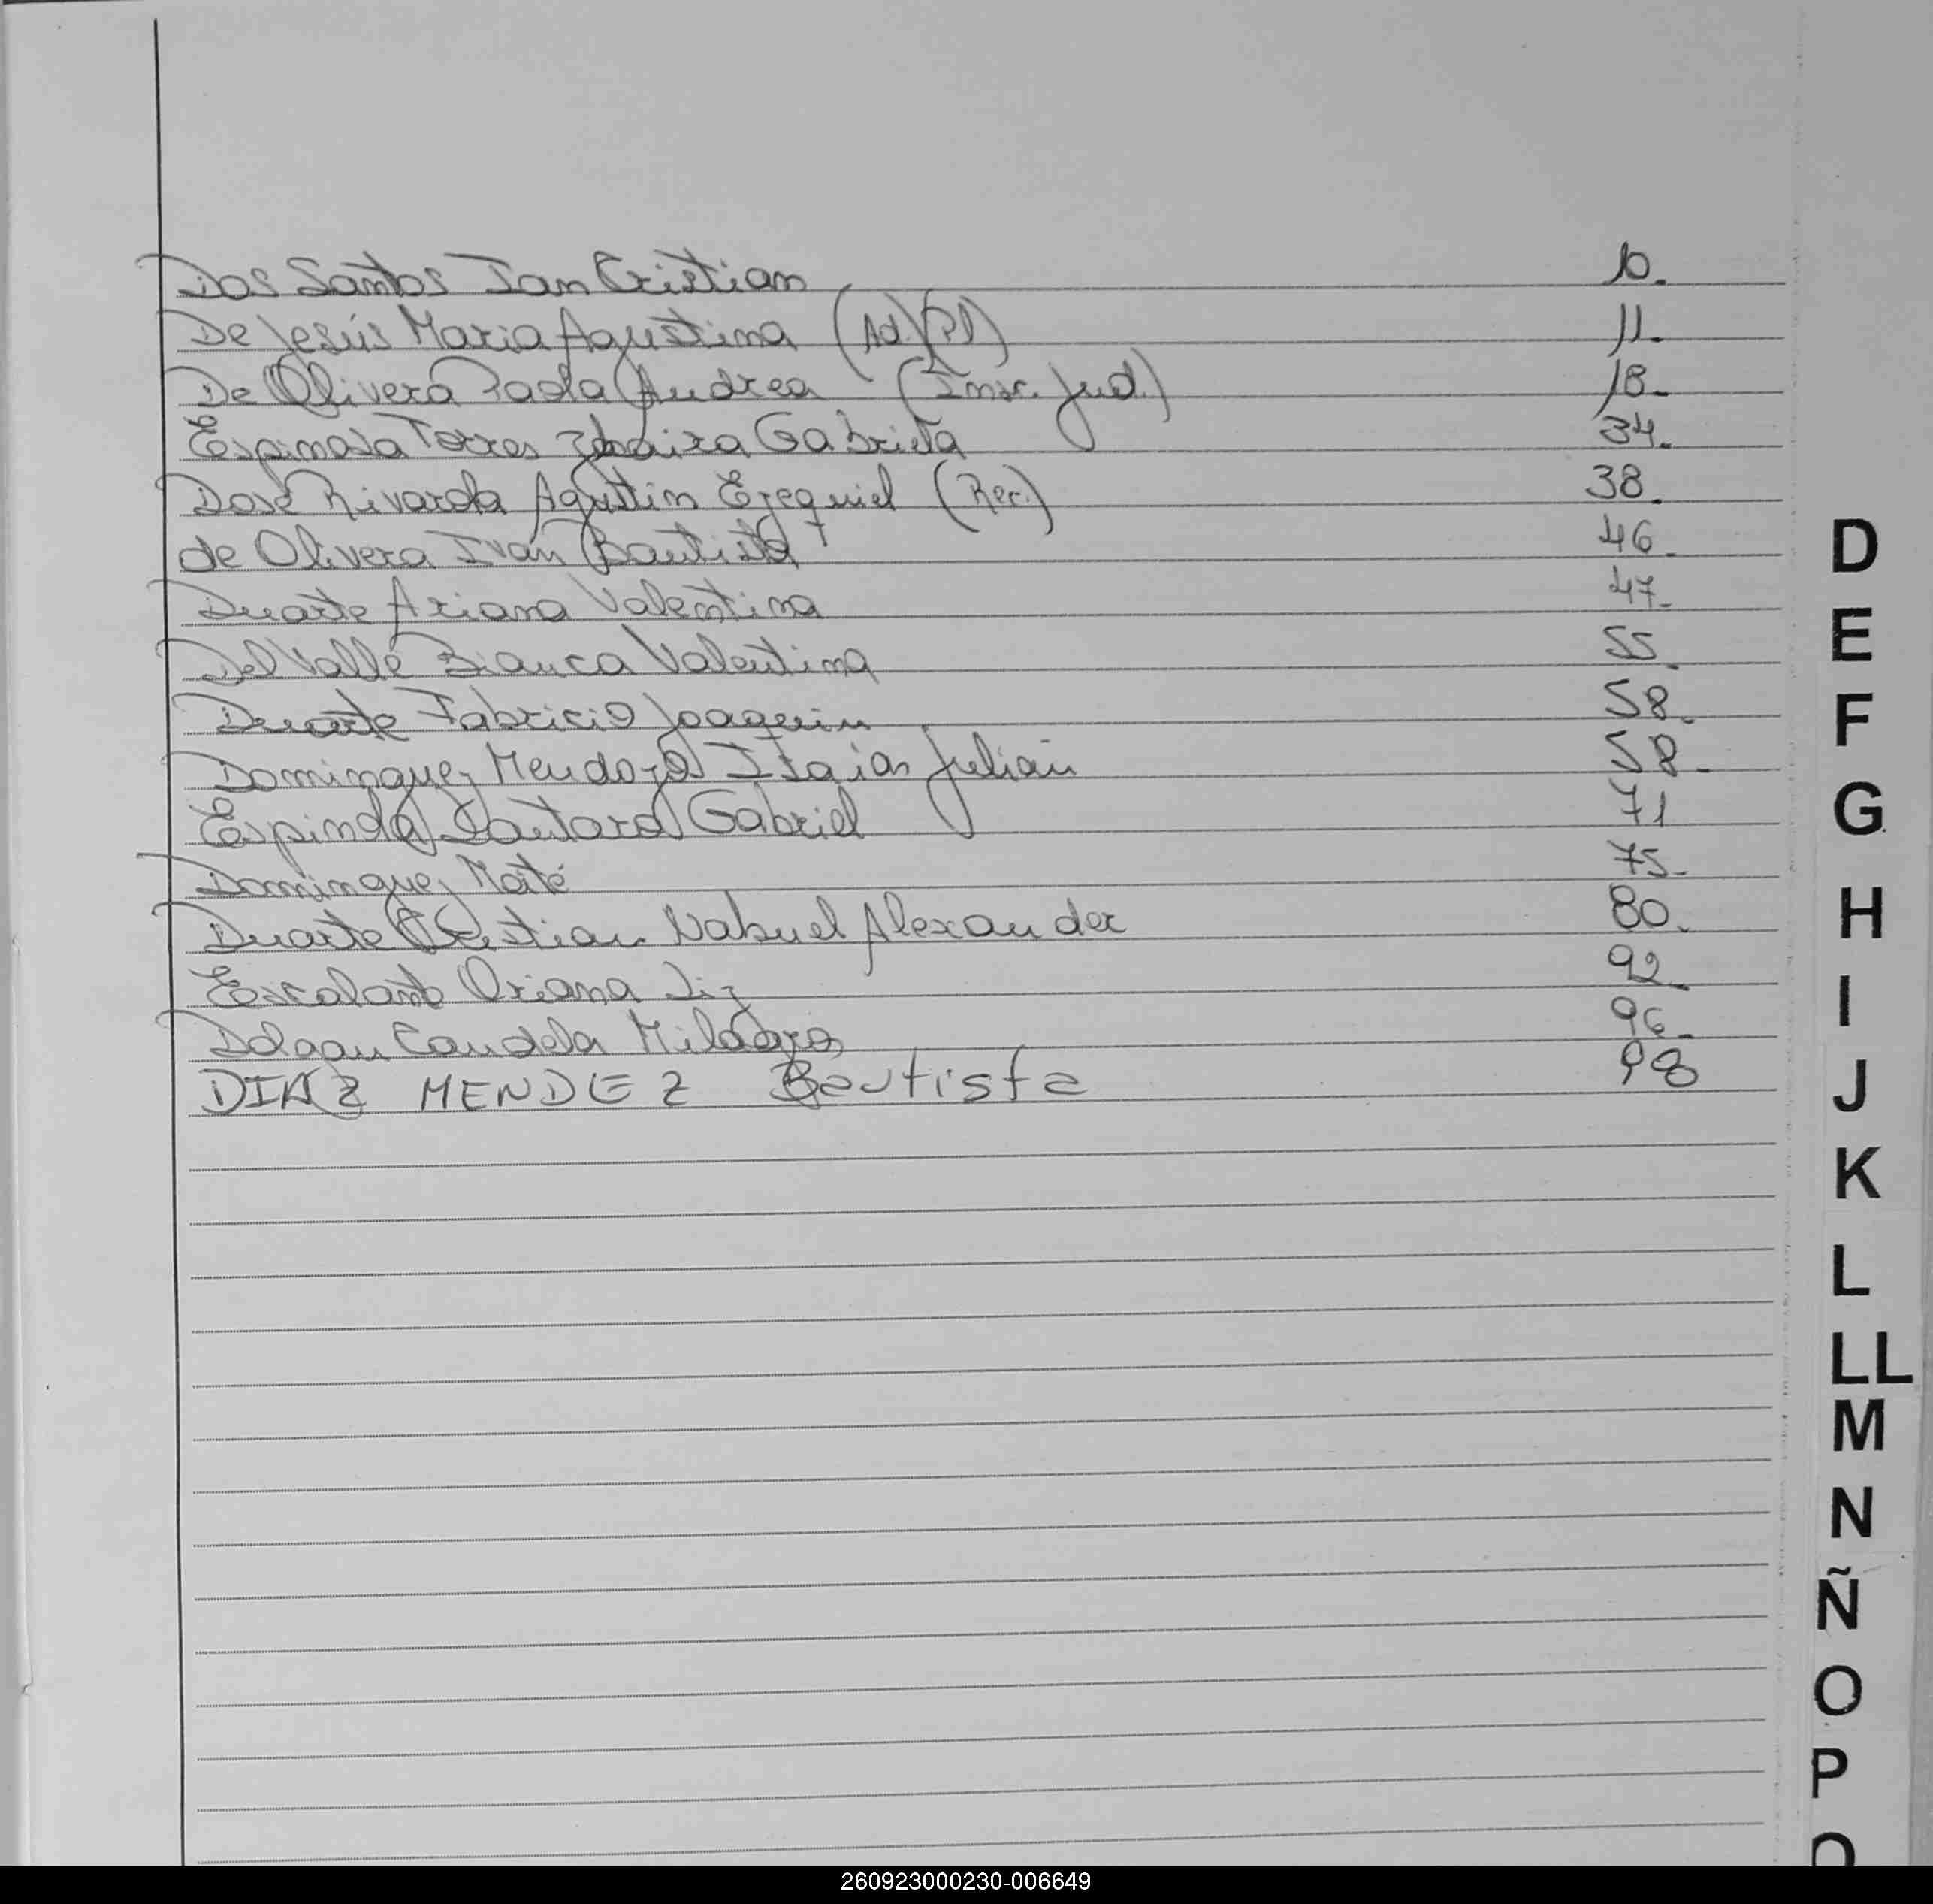 Dos Santos Ian Cristian 10.
De Jesús Maria Agustina (Ad. Pl) 11.
De Olivera Paola Andrea (Insc. Jud.) 18.
Espinosa Torres Gabriela 34.
Dosé Rivarola Agustin Ezequiel (Rec.) 38.
de Olivera Iván Bautista 46.
Duarte Ariana Valentina 47.
Del Valle Bianca Valentina 55.
Duarte Fabricio Joaquin 58.
Dominguez Mendoza Isaias Julián 58.
Espindola Lautaro Gabriel 71
Dominguez Maité 75.
Duarte Cristian Nahuel Alexander 80.
Escalante Oriana Liz 92.
Dolgan Candela Milagros 96.
DIAZ MENDEZ Bautista 98
D
E
F
G
H
I
J
K
L
LL
M
N
Ñ
O
P
260923000230-006649